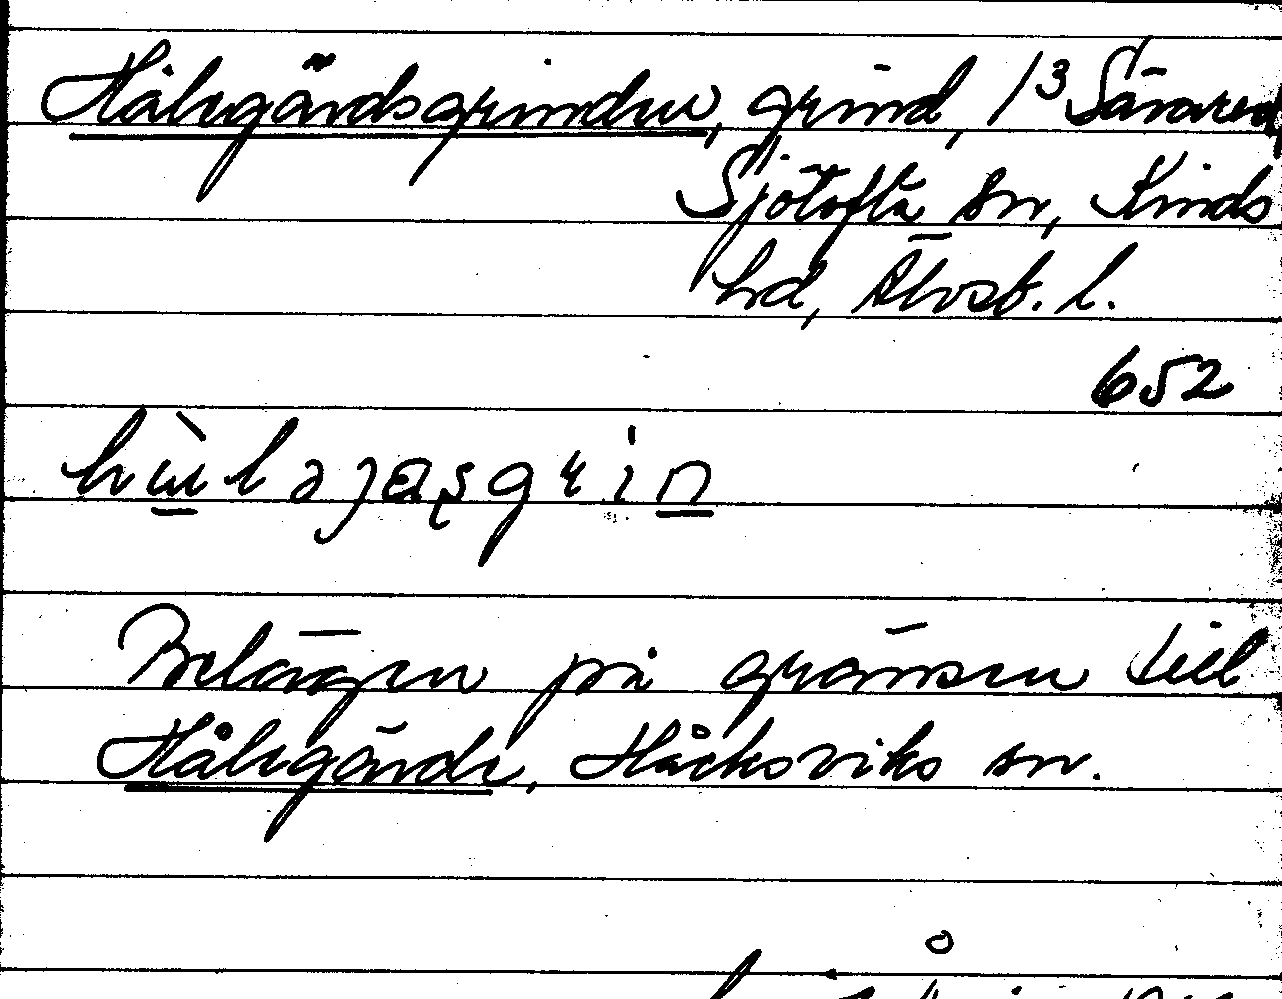 Hålegärdsgrinden, grind, 1³ Särared,
Sjötofta sn, Kinds
hd, Älvsb. l.
652
Belägen på gränsen till
Hålegärde, Håcksviks sn.